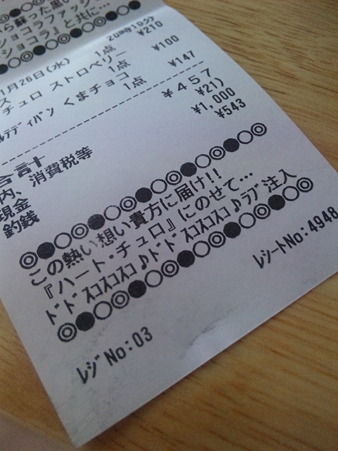 ら蘇った思い
ョコラファッ
ショコラ』と共に…
◎●○◎●○◎●○◎●○◎
1月26日(水) 20時19分
ス 1点 ¥210
チュロ ストロベリー
1点 ¥100
ルテディパン くまチョコ
1点 ¥147
合計 ¥457
内、消費税等 ¥21)
現金 ¥1,000
釣銭 ¥543
この熱い想い貴方に届け!!
『ハート・チュロ』にのせて…
ドドスコスコスコ♪ドドスコスコスコ♪ラブ注入
レジNo:03 レシートNo:4948